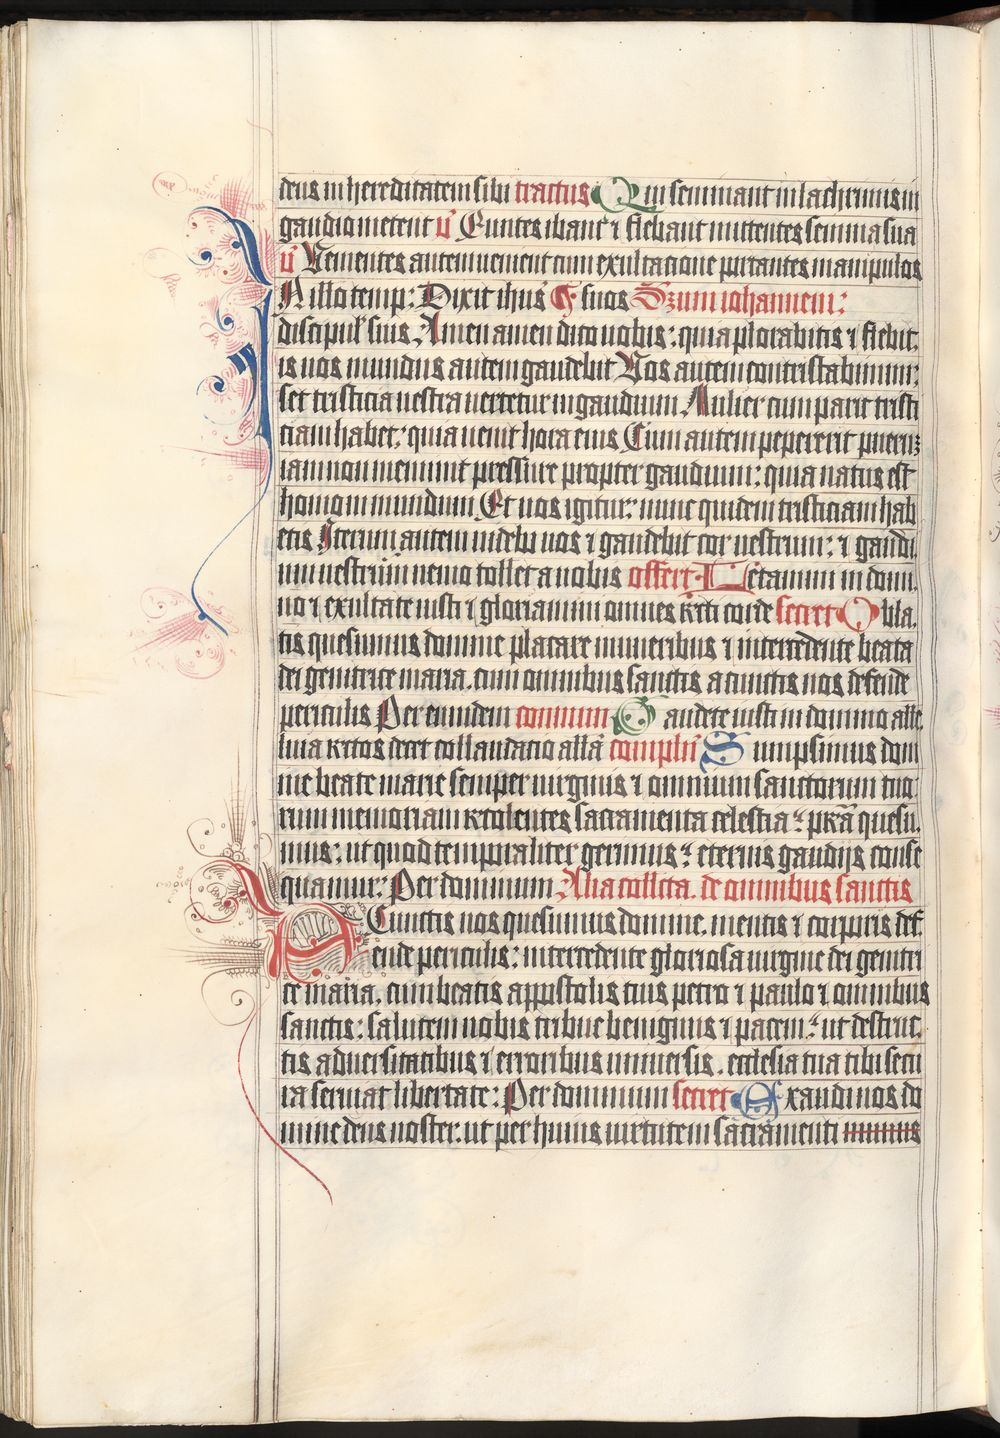 deus in hereditatem sibi tractus Qui seminant in lachrimis in
gaudio metent v̄ Euntes ibant ⁊ flebant mittentes semina sua
v̄ Venientes autem uenient cum exultatione portantes manipulos
N illo temp: Dixit ihus suos Scdzum iohannem:
discipul' suis, Amen amen dico uobis: quia plorabitis ⁊ flebit:
is uos mundus autem gaudebit Vos autem contristabimini:
set tristicia uestra uertetur in gaudium Mulier cum parit tristi
ciam habet: quia uenit hora eius Cum autem pepererit pueruz
iam non meminit pressure propter gaudium: quia natus est
homo in mundum Et uos igitur: nunc quidem tristiciam hab
etis Iterum autem uidebo uos ⁊ gaudebit cor uestrum: ⁊ gaudi
um uestrum nemo tollet a uobis offert Letamini in domi
no ⁊ exultate iusti ⁊ gloriamini omnes recti corde secret Obla
tis quesumus domine placare muneribus ⁊ intercedente beata
dei genitrice maria. cum omnibus sanctis a cunctis nos defende
periculis Per eumdem commun Gaudete iusti in domino alle
luia rectos decet collaudatio alla complen Sumpsimus domi
ne beate marie semper uirginis ⁊ omnium sanctorum tuo
rum memoriam recolentes sacramenta celestia: presta quesu
mus: ut quod temporaliter gerimus: eternis gaudijs conse
quamur: Per dominum Alia collecta. de omnibus sanctis
A Cunctis nos quesumus domine. mentis ⁊ corporis def
ende periculis: intercedente gloriosa uirgine dei genitri
ce maria. cum beatis appostolis tuis petro ⁊ paulo ⁊ omnibus
sanctis: salutem nobis tribue benignus ⁊ pacem: ut destruc
tis aduersitatibus ⁊ erroribus uniuersis. ecclesia tua tibi secu
ra seruiat libertate: Per dominum secret Exaudi nos do
mine deus noster. ut per huius uirtutem sacramenti